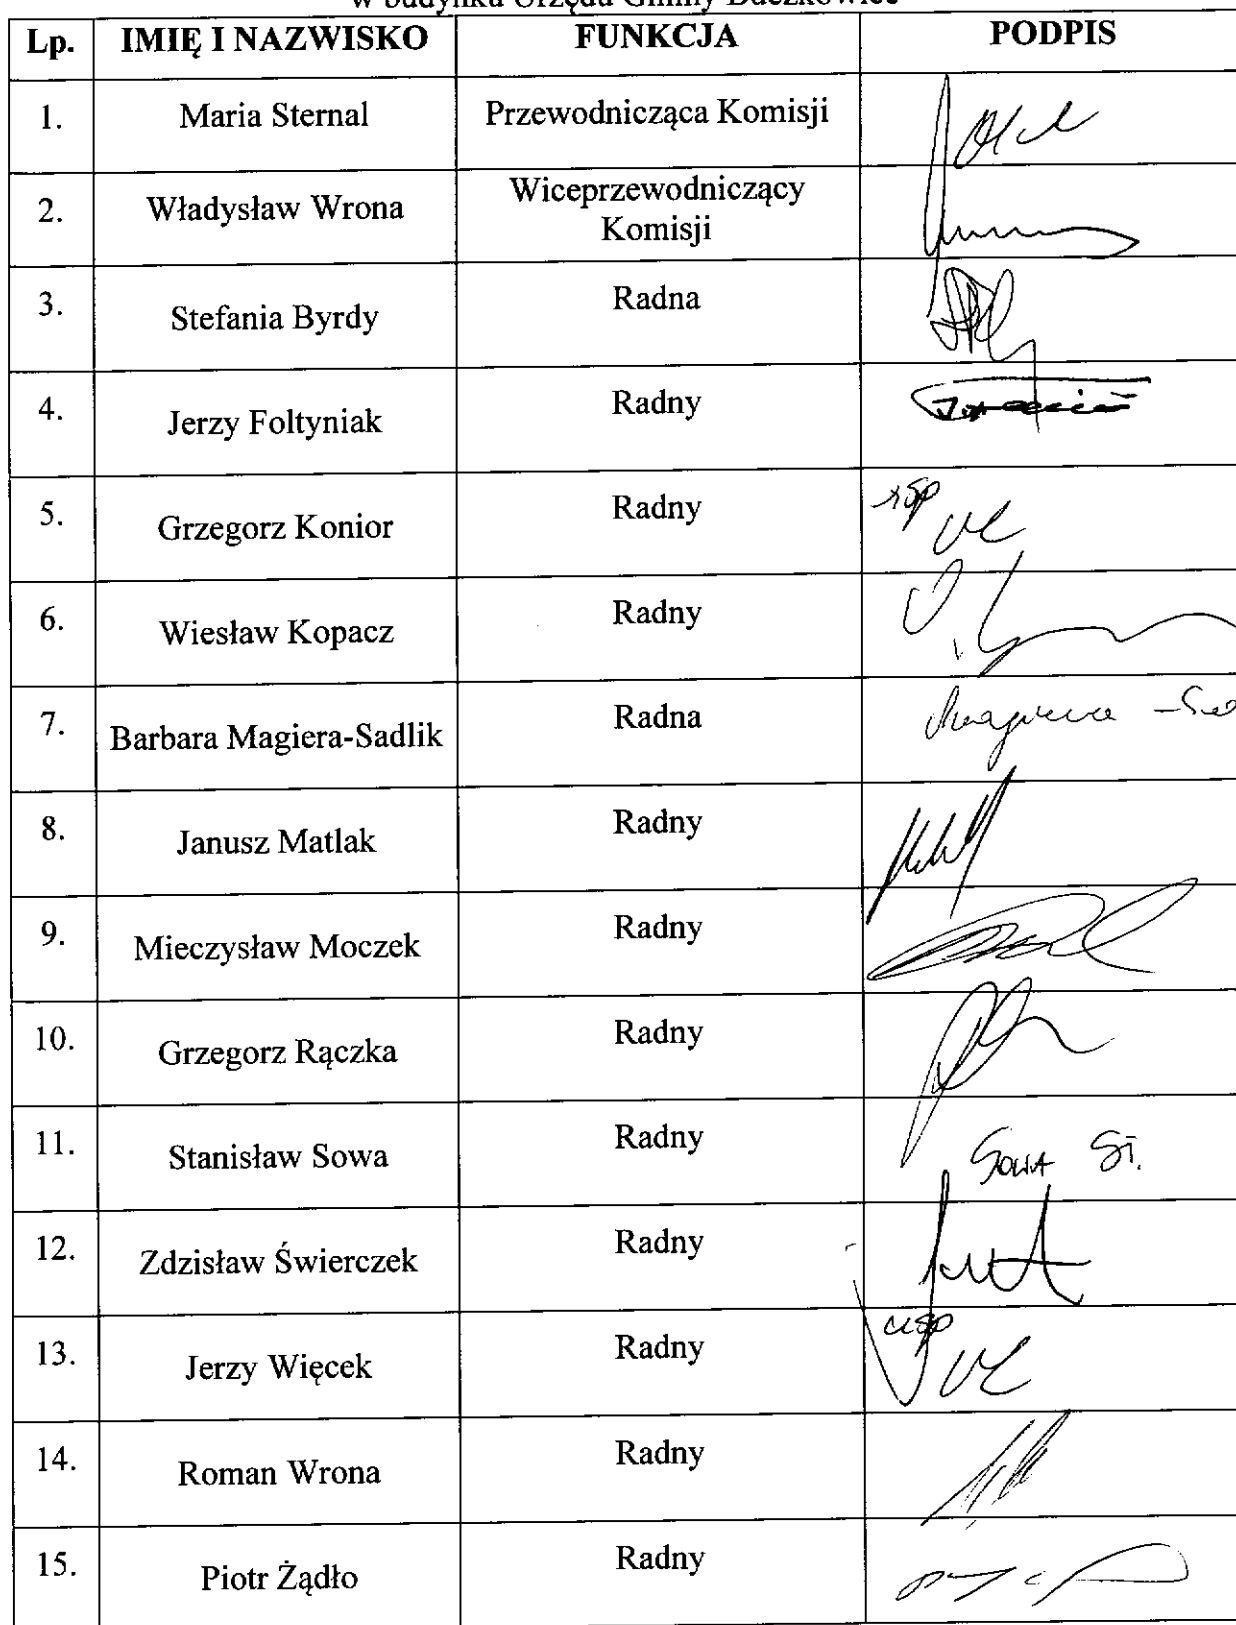 w budynku Urzędu Gminy Buczkowice
Lp. IMIĘ I NAZWISKO FUNKCJA PODPIS
1. Maria Sternal Przewodnicząca Komisji
2. Władysław Wrona Wiceprzewodniczący
Komisji
3. Stefania Byrdy Radna
4. Jerzy Foltyniak Radny
5. Grzegorz Konior Radny
6. Wiesław Kopacz Radny
7. Barbara Magiera-Sadlik Radna
8. Janusz Matlak Radny
9. Mieczysław Moczek Radny
10. Grzegorz Rączka Radny
11. Stanisław Sowa Radny SOWA ST.
12. Zdzisław Świerczek Radny
13. Jerzy Więcek Radny
14. Roman Wrona Radny
15. Piotr Żądło Radny